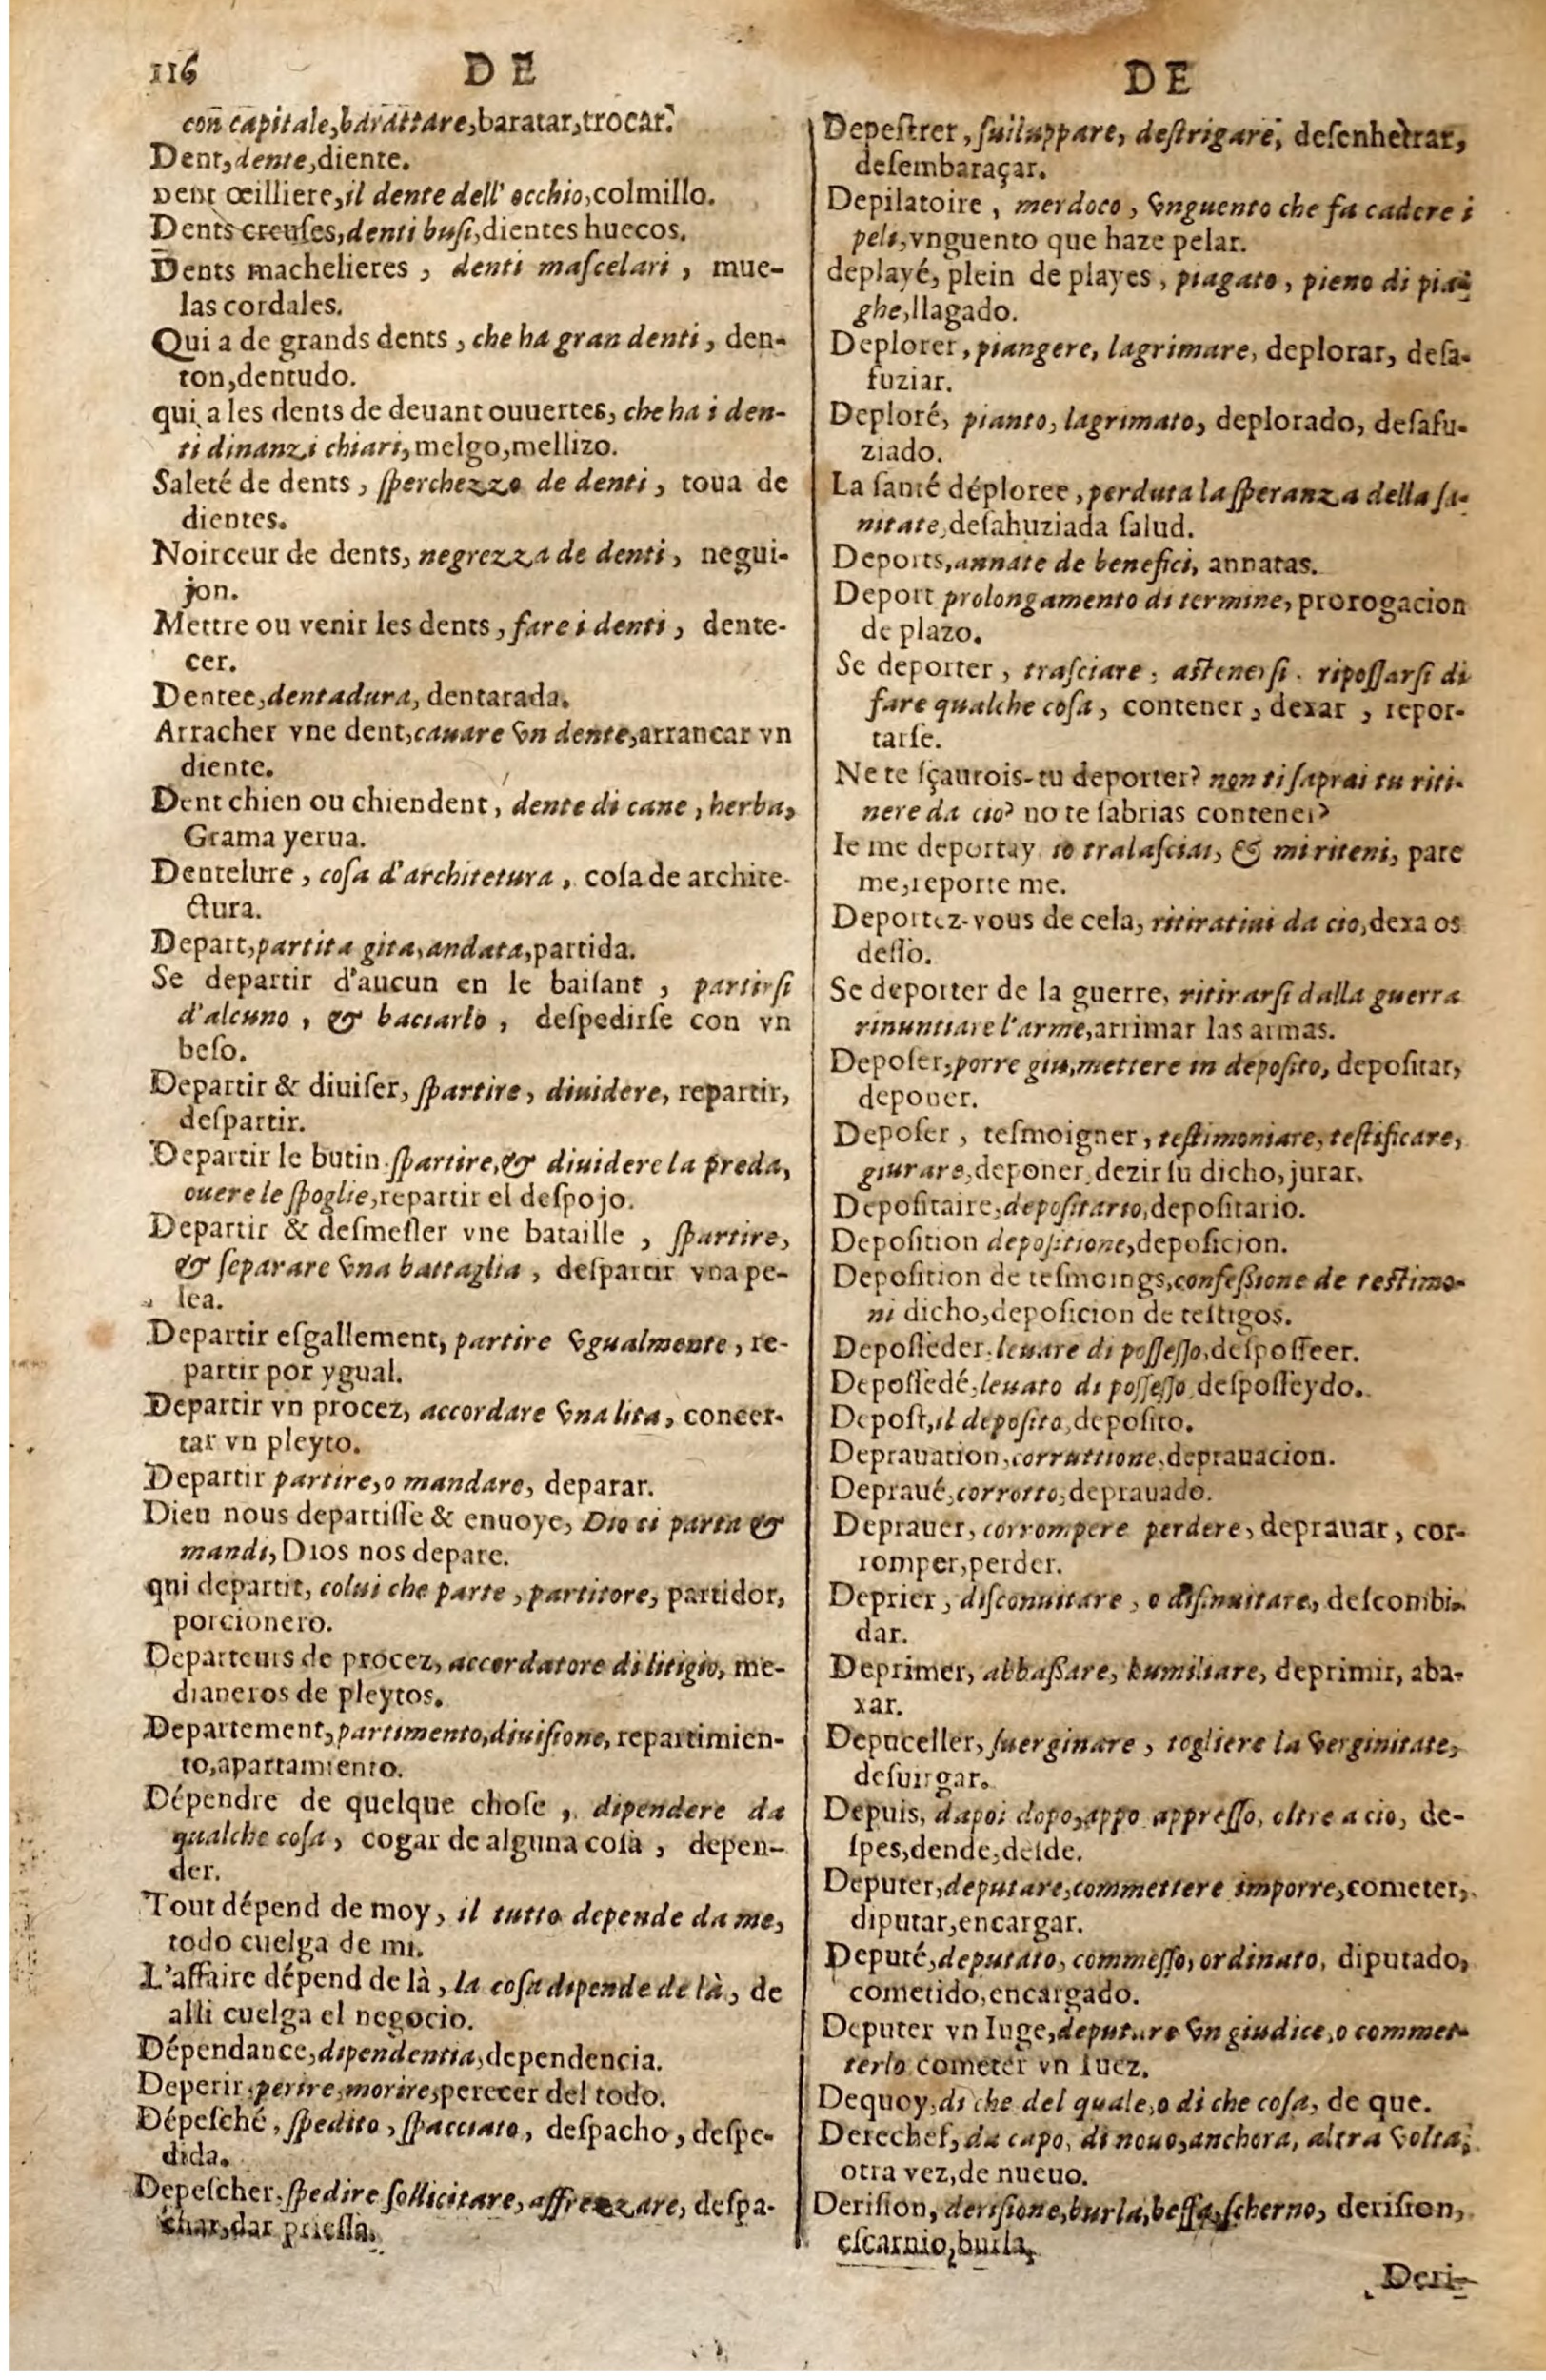 116 DE
con capitale, barattare, baratar, trocar.
Dent, dente, diente.
Dent œilliere, il dente dell' occhio, colmillo.
Dents creuſes, denti buſi, dientes huecos.
Dents machelieres, denti maſcelari, mue-
las cordales.
Qui a de grands dents, che ha gran denti, den-
ton, dentudo.
qui a les dents de deuant ouuertes, che ha i den-
ti dinanzi chiari, melgo, mellizo.
Saleté de dents, ſperchezzo de denti, toua de
dientes.
Noirceur de dents, negrezza de denti, negui-
jon.
Mettre ou venir les dents, fare i denti, dente-
cer.
Dentee, dentadura, dentarada.
Arracher vne dent, cauare vn dente, arrancar vn
diente.
Dent chien ou chiendent, dente di cane, herba,
Grama yerua.
Dentelure, coſa d'architetura, coſa de archite-
ctura.
Depart, partita gita, andata, partida.
Se departir d'aucun en le baiſant, partirſi
d'alcuno, & baciarlo, deſpedirſe con vn
beſo.
Departir & diuiſer, ſpartire, diuidere, repartir,
deſpartir.
Departir le butin. ſpartire, & diuidere la preda,
ouere le ſpoglie, repartir el deſpojo.
Departir & deſmeſler vne bataille, ſpartire,
& ſeparare vna battaglia, deſpartir vna pe-
lea.
Departir eſgallement, partire vgualmente, re-
partir por ygual.
Departir vn procez, accordare vna lita, concer-
tar vn pleyto.
Departir partire, o mandare, deparar.
Dieu nous departiſſe & enuoye, Dio ci parta &
mandi, Dios nos depare.
qui departit, colui che parte, partitore, partidor,
porcionero.
Departeurs de procez, accordatore di litigio, me-
dianeros de pleytos.
Departement, partimento, diuiſione, repartimien-
to, apartamiento.
Dépendre de quelque choſe, dipendere da
qualche coſa, cogar de alguna coſa, depen-
der.
Tout dépend de moy, il tutto depende da me,
todo cuelga de mi.
L'affaire dépend de là, la coſa dipende de là, de
alli cuelga el negocio.
Dépendance, dipendentia, dependencia.
Deperir, perire, morire, perecer del todo.
Dépeſché, ſpedito, ſpacciato, deſpacho, deſpe-
dida.
Depeſcher, ſpedire ſollicitare, affrezzare, deſpa-
char, dar prieſſa.
DE
Depeſtrer, ſuiluppare, deſtrigare, deſenhetrar,
deſembaraçar.
Depilatoire, merdoco, vnguento che fa cadere i
peli, vnguento que haze pelar.
deplayé, plein de playes, piagato, pieno di pia-
ghe, llagado.
Deplorer, piangere, lagrimare, deplorar, deſa-
fuziar.
Deploré, pianto, lagrimato, deplorado, deſafu-
ziado.
La ſanté déploree, perduta la ſperanza della ſa-
nitate, deſahuziada ſalud.
Deports, annate de benefici, annatas.
Deport prolongamento di termine, prorogacion
de plazo.
Se deporter, traſciare, aſtenerſi. ripoſſarſi di
fare qualche coſa, contener, dexar, repor-
tarſe.
Ne te ſçaurois-tu deporter? non ti ſaprai tu riti-
nere da cio? no te ſabrias contener?
Ie me deportay io tralaſciai, & mi riteni, pare
me, reporte me.
Deportez-vous de cela, ritiratiui da cio, dexa os
deſſo.
Se deporter de la guerre, ritirarſi dalla guerra
rinuntiare l'arme, arrimar las armas.
Depoſer, porre giu, mettere in depoſito, depoſitar,
deponer.
Depoſer, teſmoigner, teſtimoniare, teſtificare,
giurare, deponer, dezir ſu dicho, jurar.
Depoſitaire, depoſitario, depoſitario.
Depoſition depoſitione, depoſicion.
Depoſition de teſmoings, confeſſione de teſtimo-
ni dicho, depoſicion de teſtigos.
Depoſſeder. leuare di poſſeſſo, deſpoſſeer.
Depoſſedé, leuato di poſſeſſo, deſpoſſeydo.
Depoſt, il depoſito, depoſito.
Deprauation, corruttione, deprauacion.
Depraué, corrotto, deprauado.
Deprauer, corrompere perdere, deprauar, cor-
romper, perder.
Deprier, diſconuitare, o diſinuitare, deſcombi-
dar.
Deprimer, abbaſſare, humiliare, deprimir, aba-
xar.
Depuceller, ſuerginare, togliere la verginitate,
deſuirgar.
Depuis, dapoi dopo, appo appreſſo, oltre a cio, de-
ſpes, dende, deſde.
Deputer, deputare, commettere imporre, cometer,
diputar, encargar.
Deputé, deputato, commeſſo, ordinato, diputado,
cometido, encargado.
Deputer vn Iuge, deputare vn giudice, o commet-
terlo cometer vn Iuez.
Dequoy, di che del quale, o di che coſa, de que.
Derechef, da capo, di nouo, anchora, altra volta,
otra vez, de nueuo.
Deriſion, deriſione, burla, beffa, ſcherno, deriſion,
eſcarnio, burla,
Deri-